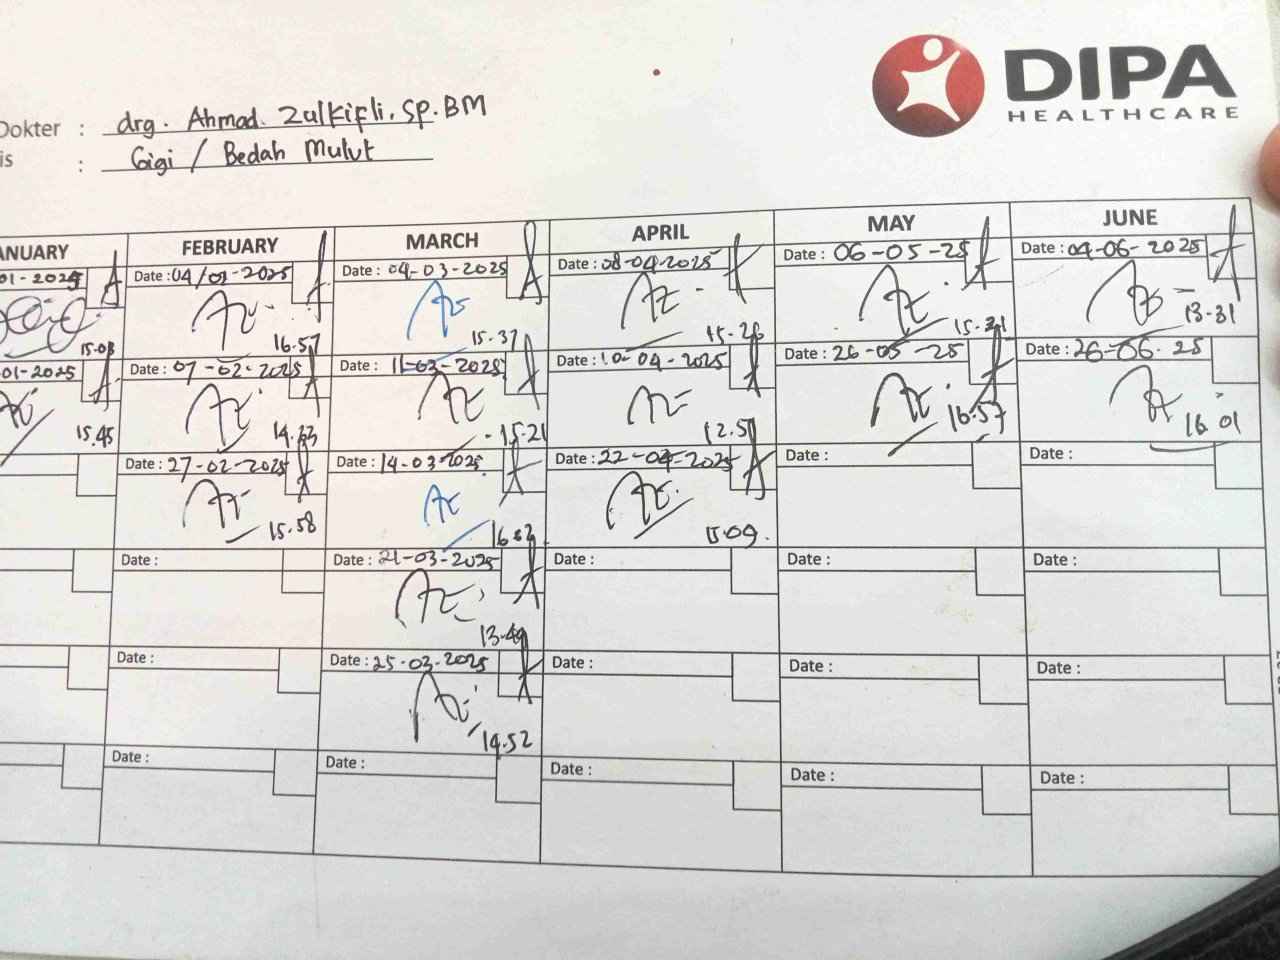 DIPA
HEALTHCARE
Dokter : drg. Ahmad Zulkifli, Sp.BM
is : Gigi / Bedah Mulut
ANUARY FEBRUARY MARCH APRIL MAY JUNE
01-2025 Date : 04/02-2025 Date : 04-03-2025 Date : 08-04-2025 Date : 06-05-25 Date : 04-06-2025
15.03 16.57 15.37 15.26 15.21 13-31
01-2025 Date : 07-02-2025 Date : 11-03-2025 Date : 10-04-2025 Date : 26-05-25 Date : 26-06.25
15.45 14.23 15.21 12.51 16.57 16.01
Date : 27-02-2025 Date : 14-03-2025 Date : 22-04-2025 Date : Date :
15.58 15.09.
Date : Date : 21-03-2025 Date : Date : Date :
13-49
Date : Date : 25-03-2025 Date : Date : Date :
14.52
Date : Date : Date : Date : Date :